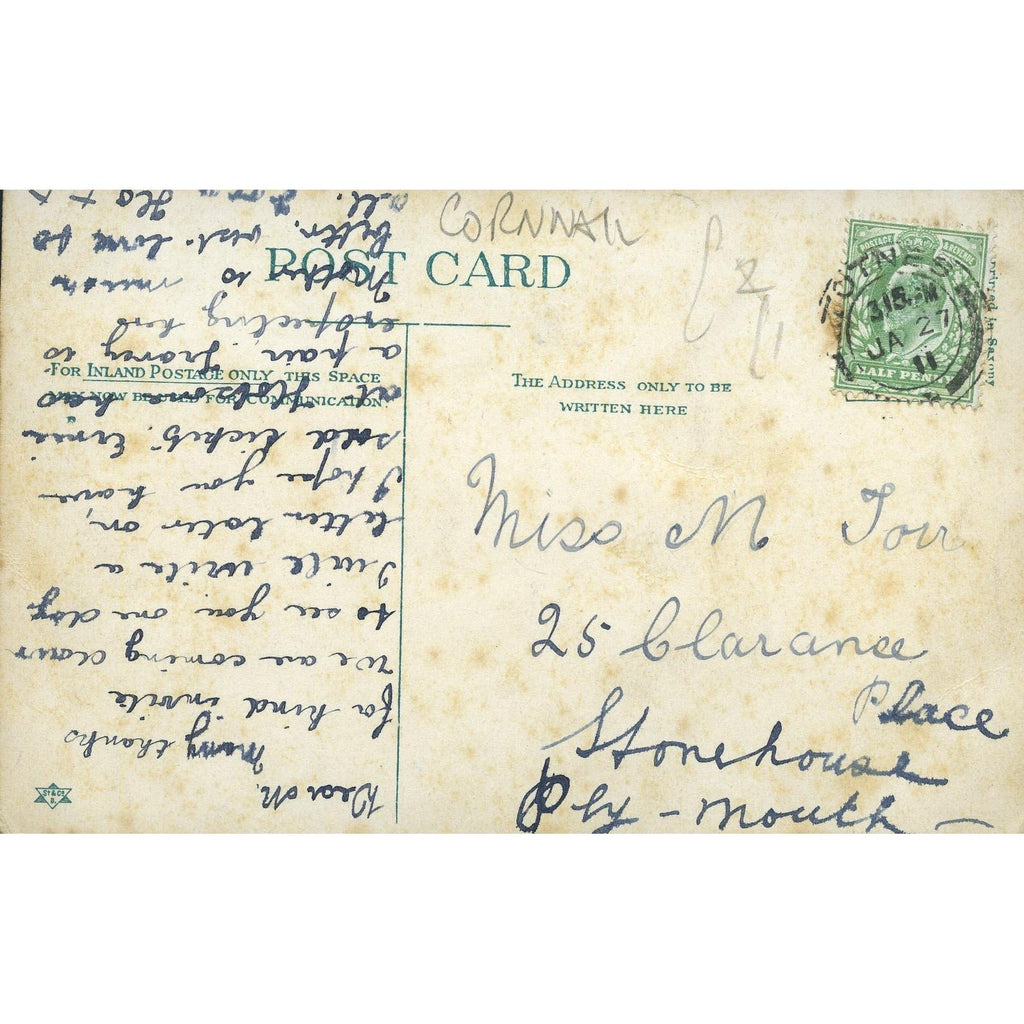 CORNWALL
POST CARD
FOR INLAND POSTAGE ONLY THIS SPACE
MAY NOW BE USED FOR COMMUNICATION.
THE ADDRESS ONLY TO BE
WRITTEN HERE
POSTAGE & REVENUE
HALF PENNY
TOTNES
3 15 PM
JA 27
11
Printed in Saxony
Miss M Torr
25 Clarance
Place
Stonehouse
Ply-mouth
St & Co
B.
Dear M.
Many thanks
for kind invite
We are coming down
to see you one day
I will write a
letter later on,
I hope you have
sold tickets. Ernie
at has
a pair Franey to
expecting her
Mother to
better. best love to
all.